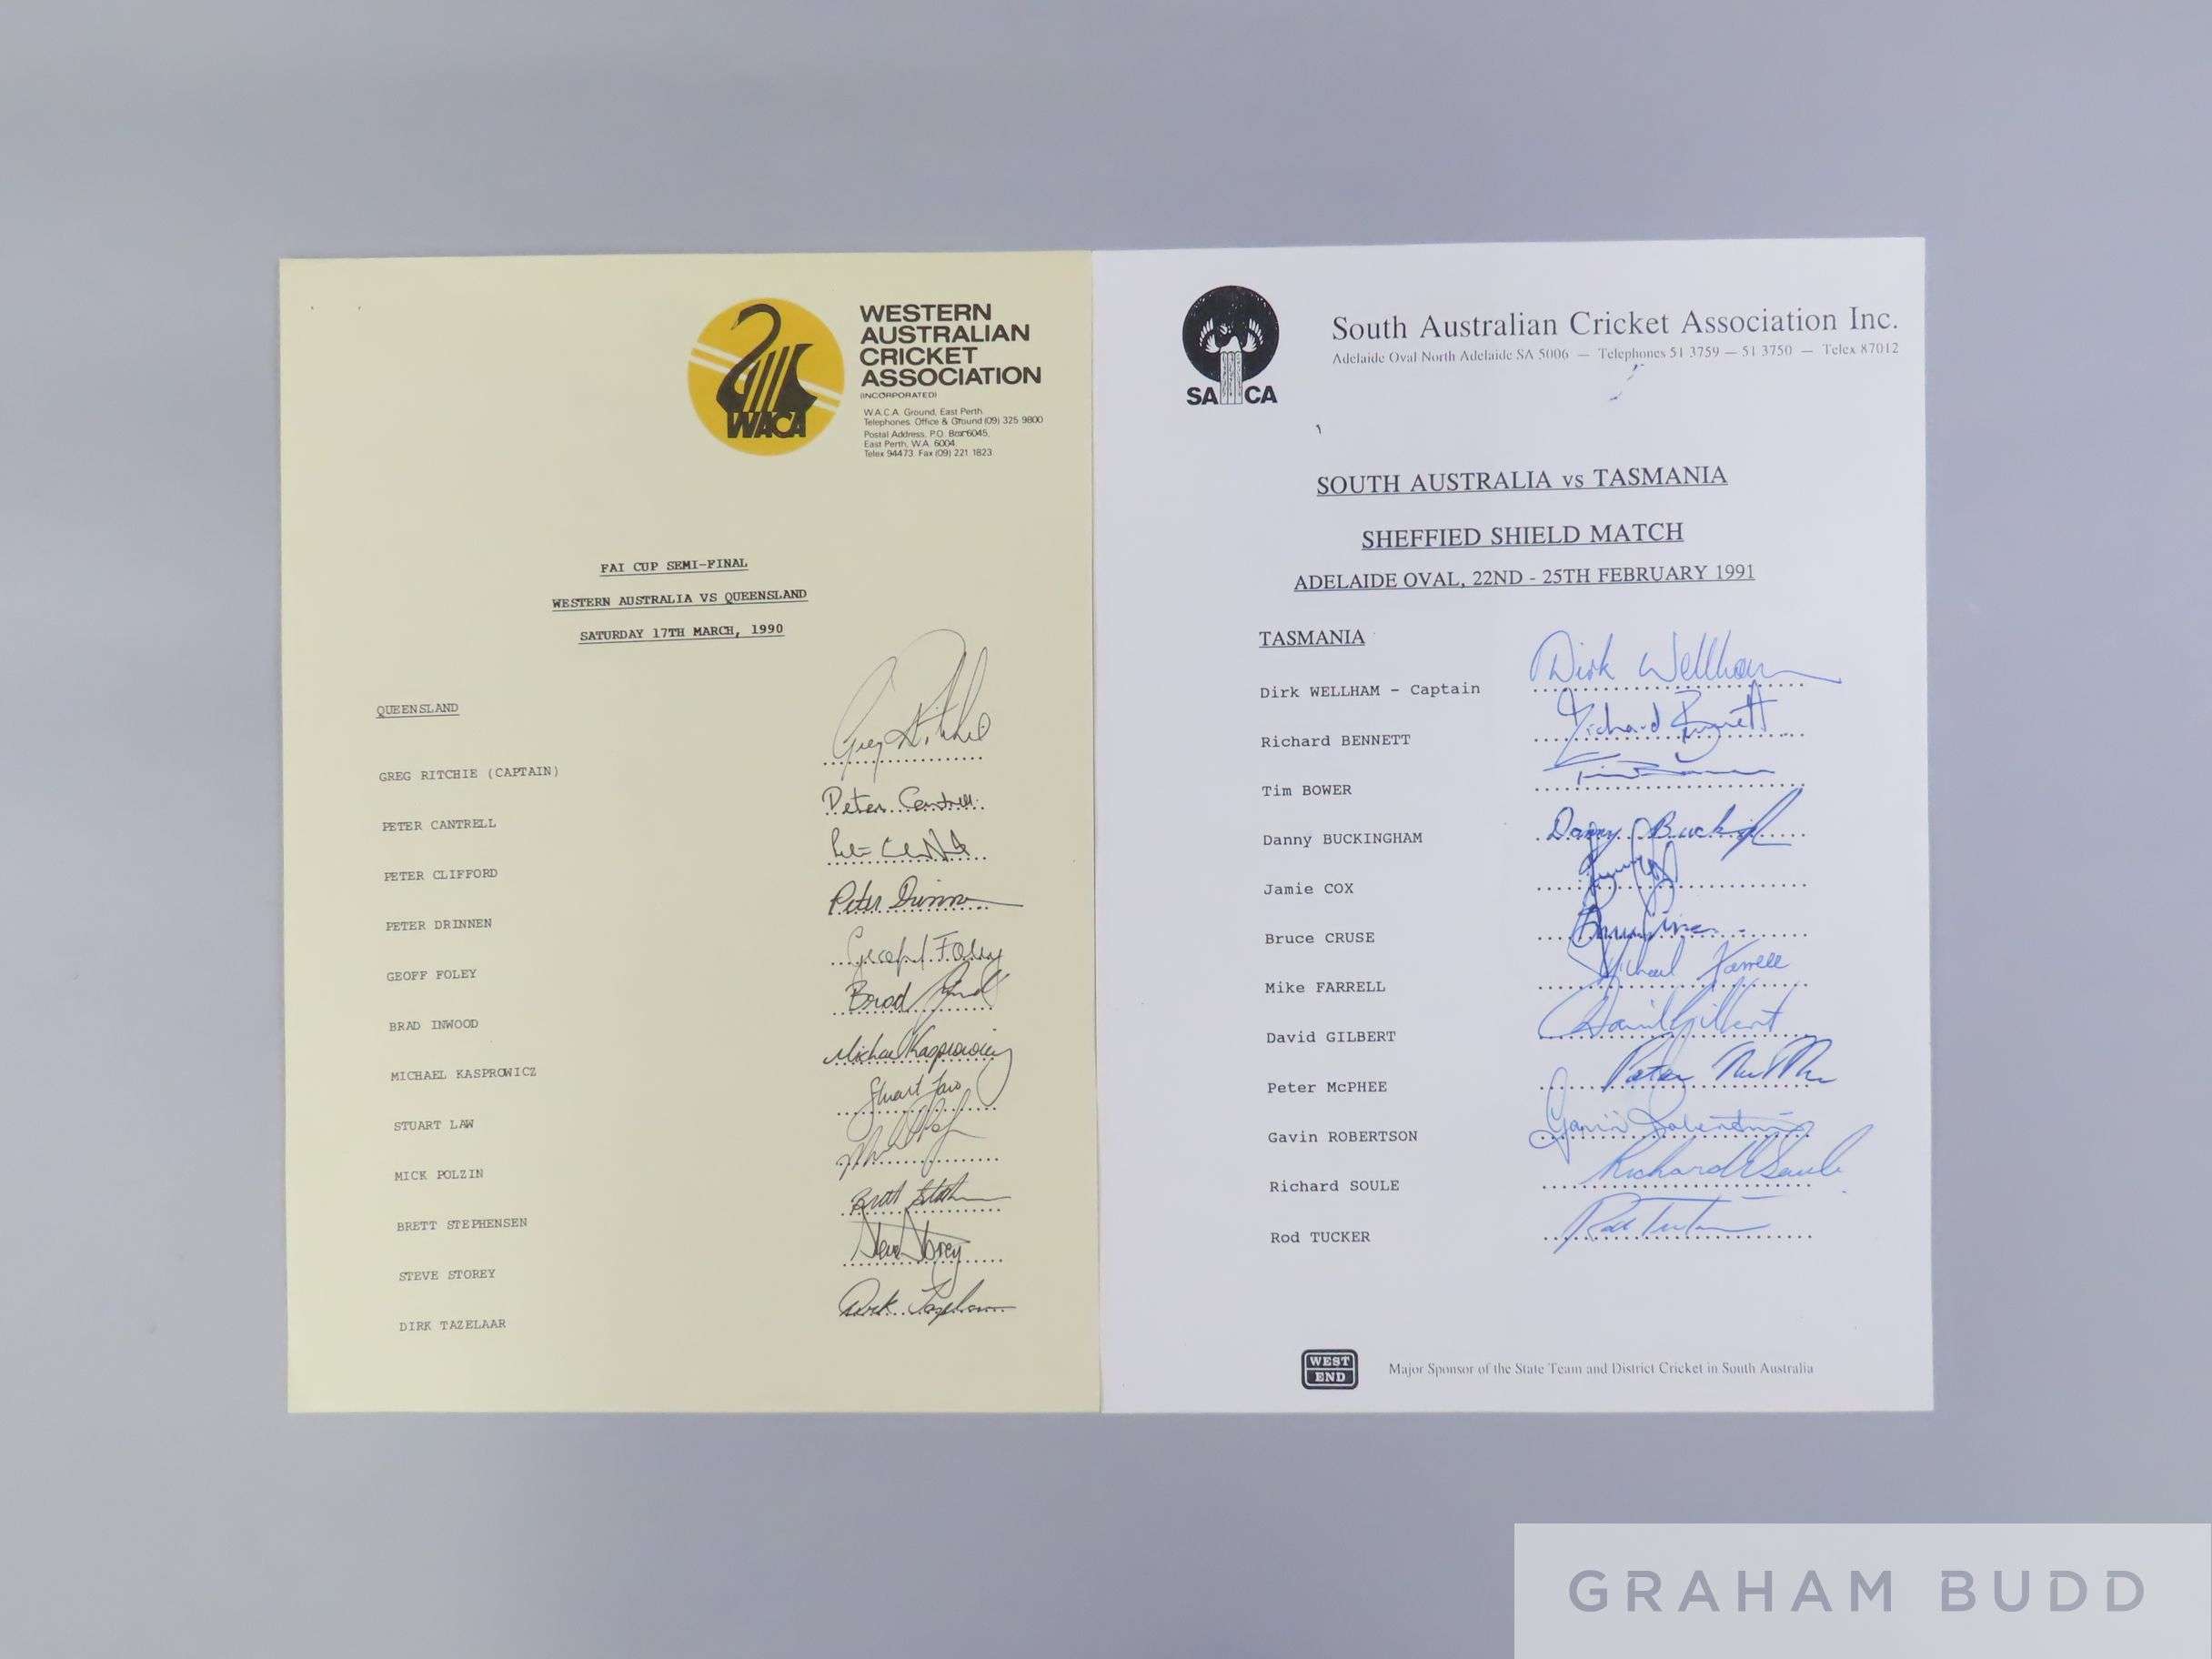 WACA
WESTERN
AUSTRALIAN
CRICKET
ASSOCIATION
(INCORPORATED)
W.A.C.A. Ground, East Perth.
Telephones: Office & Ground (09) 325 9800
Postal Address, P.O. Box 6045,
East Perth, W.A. 6004
Telex 94473 Fax (09) 221 1823
FAI CUP SEMI-FINAL
WESTERN AUSTRALIA VS QUEENSLAND
SATURDAY 17TH MARCH, 1990
QUEENSLAND
GREG RITCHIE (CAPTAIN) Greg Ritchie
PETER CANTRELL Peter Cantrell
PETER CLIFFORD
PETER DRINNEN Peter Drinnen
GEOFF FOLEY Geoff Foley
BRAD INWOOD Brad
MICHAEL KASPROWICZ Michael Kasprowicz
STUART LAW Stuart Law
MICK POLZIN
BRETT STEPHENSEN Brett
STEVE STOREY Steve Storey
DIRK TAZELAAR Dirk Tazelaar
SA CA
South Australian Cricket Association Inc.
Adelaide Oval North Adelaide SA 5006 — Telephones 51 3759 — 51 3750 — Telex 87012
SOUTH AUSTRALIA vs TASMANIA
SHEFFIED SHIELD MATCH
ADELAIDE OVAL, 22ND - 25TH FEBRUARY 1991
TASMANIA
Dirk WELLHAM - Captain Dirk Wellham
Richard BENNETT Richard Bennett
Tim BOWER Tim Bower
Danny BUCKINGHAM Danny
Jamie COX
Bruce CRUSE
Mike FARRELL Michael Farrell
David GILBERT David Gilbert
Peter McPHEE Peter
Gavin ROBERTSON Gavin Robertson
Richard SOULE Richard Soule
Rod TUCKER Rod Tucker
WEST
END
Major Sponsor of the State Team and District Cricket in South Australia
GRAHAM BUDD